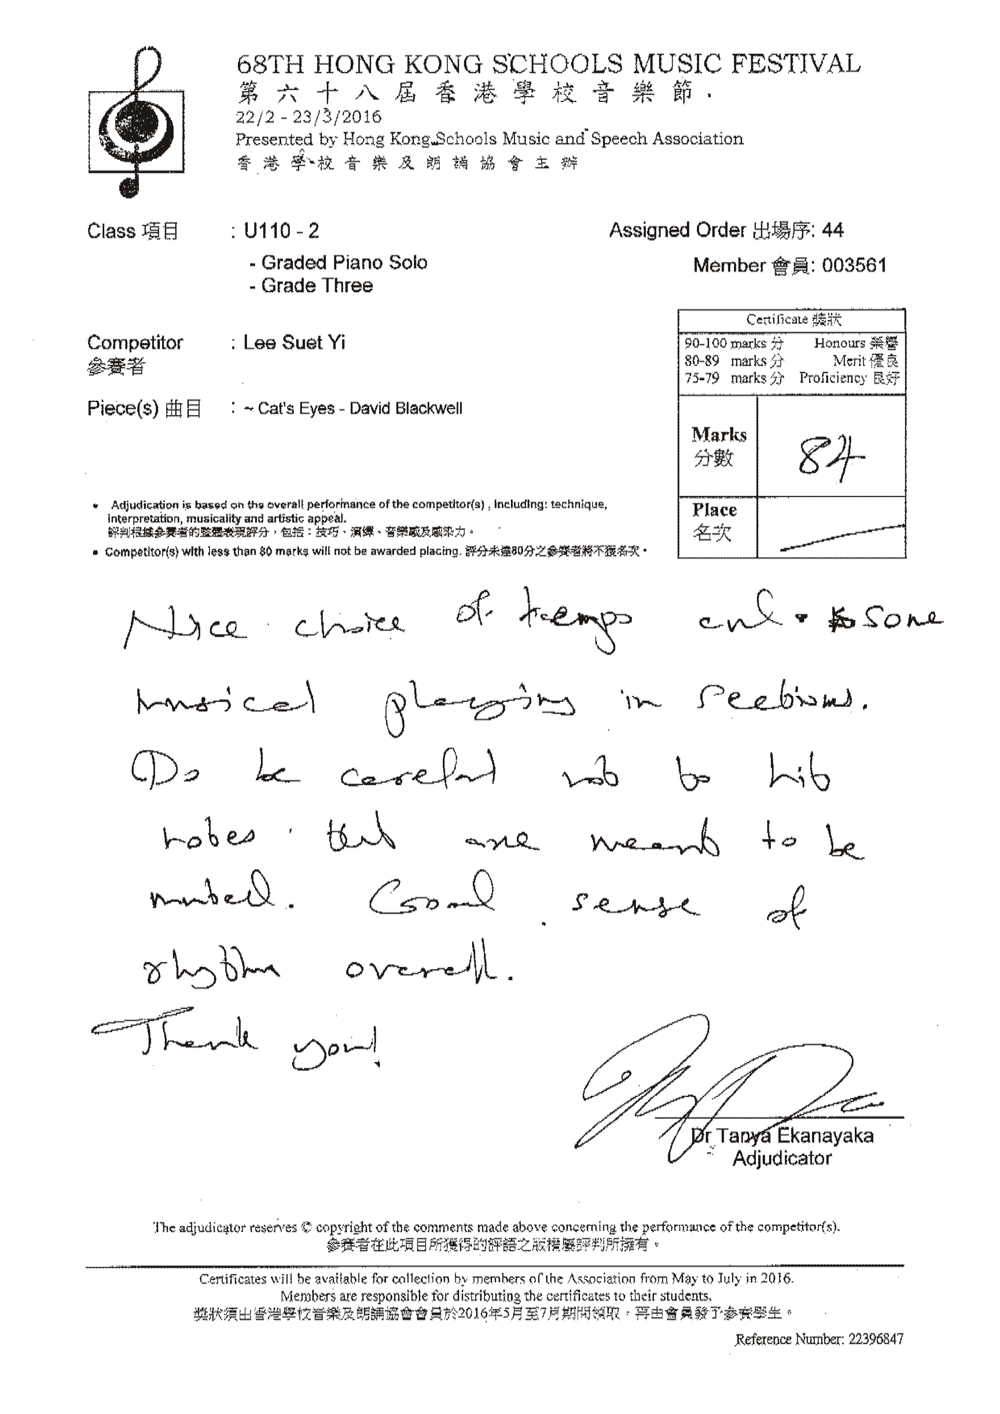 68TH HONG KONG SCHOOLS MUSIC FESTIVAL
第六十八屆香港學校音樂節
22/2 - 23/3/2016
Presented by Hong Kong Schools Music and Speech Association
香港學校音樂及朗誦協會主辦
Class 項目 : U110 - 2
Assigned Order 出場序: 44
- Graded Piano Solo
Member 會員: 003561
- Grade Three
Certificate 獎狀
90-100 marks 分 Honours 榮譽
80-89 marks 分 Merit 優良
75-79 marks 分 Proficiency 良好
Competitor : Lee Suet Yi
參賽者
Piece(s) 曲目 : ~ Cat's Eyes - David Blackwell
Marks 84
分數
Place
名次
• Adjudication is based on the overall performance of the competitor(s) , including: technique,
interpretation, musicality and artistic appeal.
評判根據參賽者的整體表現評分，包括：技巧、演繹、音樂感及感染力。
• Competitor(s) with less than 80 marks will not be awarded placing. 評分未達80分之參賽者將不獲名次。
Nice choice of tempo and some
musical playing in sections.
Do be careful not to hit
notes that are meant to be
muted. Good sense of
rhythm overall.
Thank you!
Dr Tanya Ekanayaka
Adjudicator
The adjudicator reserves © copyright of the comments made above concerning the performance of the competitor(s).
參賽者在此項目所獲得的評語之版權屬評判所擁有。
Certificates will be available for collection by members of the Association from May to July in 2016.
Members are responsible for distributing the certificates to their students.
獎狀須由香港學校音樂及朗誦協會會員於2016年5月至7月期間領取，再由會員發予參賽學生。
Reference Number: 22396847